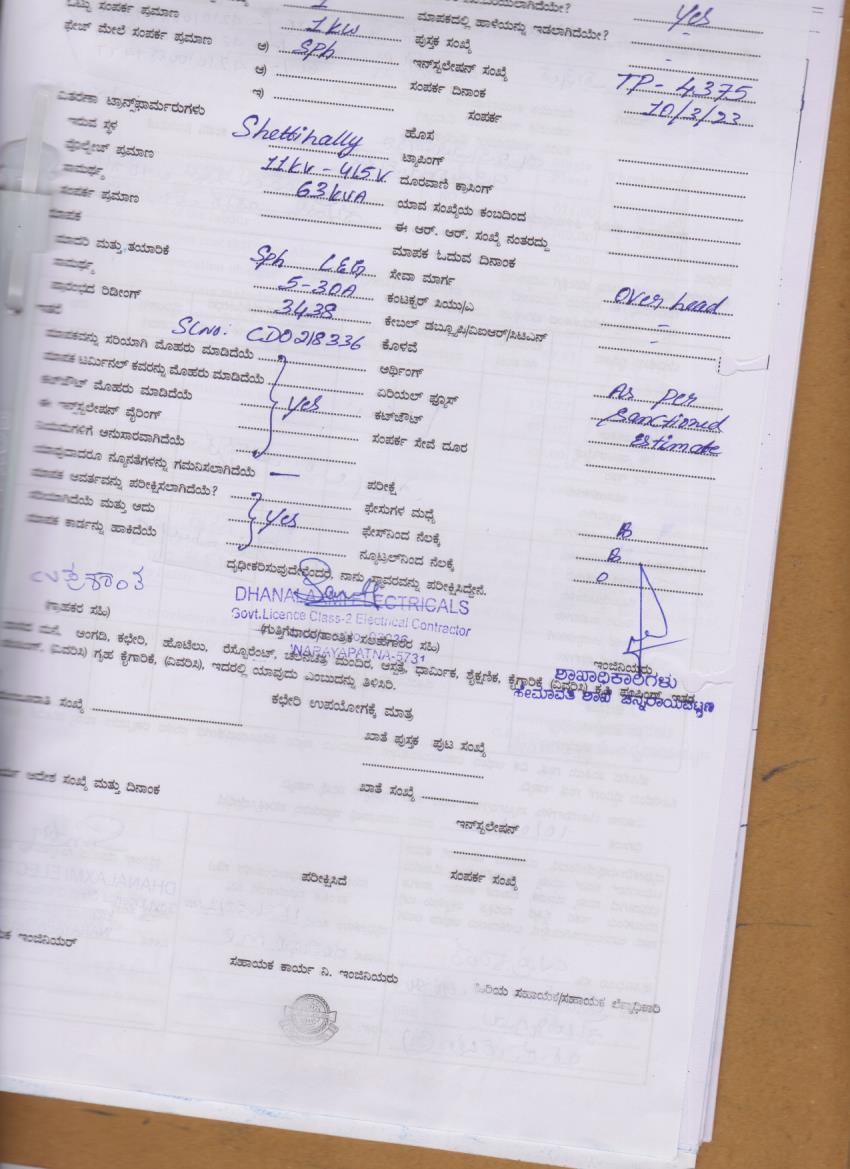 ಒಟ್ಟು ಸಂಪರ್ಕ ಪ್ರಮಾಣ 1KW ಮಾಪಕದಲ್ಲಿ ಹಾಳೆಯನ್ನು ಇಡಲಾಗಿದೆಯೇ? Yes
ಫೇಜ್ ಮೇಲೆ ಸಂಪರ್ಕ ಪ್ರಮಾಣ ಅ) SPh ಪುಸ್ತಕ ಸಂಖ್ಯೆ -
ಆ) ಇನ್‌ಸ್ಟಲೇಷನ್ ಸಂಖ್ಯೆ TP-4375
ಇ) ಸಂಪರ್ಕ ದಿನಾಂಕ 10/3/23
ವಿತರಣಾ ಟ್ರಾನ್ಸ್‌ಫಾರ್ಮರುಗಳು ಸಂಪರ್ಕ
ಇರುವ ಸ್ಥಳ Shettihally ಹೊಸ
ವೋಲ್ಟೇಜ್ ಪ್ರಮಾಣ 11KV-415V ಟ್ಯಾಪಿಂಗ್
ಸಾಮರ್ಥ್ಯ 63KVA ದೂರವಾಣಿ ಕ್ರಾಸಿಂಗ್
ಸಂಪರ್ಕ ಪ್ರಮಾಣ ಯಾವ ಸಂಖ್ಯೆಯ ಕಂಬದಿಂದ
ಮಾಪಕ ಈ ಆರ್. ಆರ್. ಸಂಖ್ಯೆ ನಂತರದ್ದು
ಮಾದರಿ ಮತ್ತು ತಯಾರಿಕೆ Sph L&G ಮಾಪಕ ಓದುವ ದಿನಾಂಕ
ಸಾಮರ್ಥ್ಯ 5-30A ಸೇವಾ ಮಾರ್ಗ Over head
ಪ್ರಾರಂಭದ ರಿಡಿಂಗ್ 3438 ಕಂಟಕ್ಟರ್ ಸಿಯು/ಎ -
ಇತರೆ Sl.No: CD0218336 ಕೇಬಲ್ ಡಬ್ಲ್ಯೂಪಿ/ವಿಐಆರ್/ಸಿಟಿಎನ್ -
ಮಾಪಕವನ್ನು ಸರಿಯಾಗಿ ಮೊಹರು ಮಾಡಿದೆಯೆ ಕೊಳವೆ
ಮಾಪಕ ಟರ್ಮಿನಲ್ ಕವರನ್ನು ಮೊಹರು ಮಾಡಿದೆಯೆ ಅರ್ಥಿಂಗ್
ಕಟ್‌ಔಟ್ ಮೊಹರು ಮಾಡಿದೆಯೆ Yes ಏರಿಯಲ್ ಫ್ಯೂಸ್ As per
ಈ ಇನ್‌ಸ್ಟಲೇಷನ್ ವೈರಿಂಗ್ ಕಟ್‌ಔಟ್ Sanctioned
ನಿಯಮಗಳಿಗೆ ಅನುಸಾರವಾಗಿದೆಯೆ ಸಂಪರ್ಕ ಸೇವೆ ದೂರ Estimate
ನ್ಯೂನತೆಗಳನ್ನು ಗಮನಿಸಲಾಗಿದೆಯೆ —
ಮಾಪಕ ಆವರ್ತವನ್ನು ಪರೀಕ್ಷಿಸಲಾಗಿದೆಯೆ? ಪರೀಕ್ಷೆ
ಸರಿಯಾಗಿದೆಯೆ ಮತ್ತು ಅದು Yes ಫೇಸುಗಳ ಮಧ್ಯೆ B
ಮಾಪಕ ಕಾರ್ಡನ್ನು ಹಾಕಿದೆಯೆ ಫೇಸ್‌ನಿಂದ ನೆಲಕ್ಕೆ B
ನ್ಯೂಟ್ರಲ್‌ನಿಂದ ನೆಲಕ್ಕೆ 0
ದೃಢೀಕರಿಸುವುದೇನೆಂದರೆ, ನಾನು ಸ್ಥಾವರವನ್ನು ಪರೀಕ್ಷಿಸಿದ್ದೇನೆ.
DHANALAXMI ELECTRICALS
Govt.Licence Class-2 Electrical Contractor
(ಗ್ರಾಹಕರ ಸಹಿ) (ಗುತ್ತಿಗೆದಾರರ/ತಾಂತ್ರಿಕ ಸಲಹೆಗಾರರ ಸಹಿ)
NARAYAPATNA-5731
ಇಂಜಿನಿಯರು
ಶಾಖಾಧಿಕಾರಿಗಳು
ಮನೆ, ಅಂಗಡಿ, ಕಛೇರಿ, ಹೊಟೆಲು, ರೆಸ್ಟೋರೆಂಟ್, ಚಲನಚಿತ್ರ ಮಂದಿರ, ಆಸ್ಪತ್ರೆ, ಧಾರ್ಮಿಕ, ಶೈಕ್ಷಣಿಕ, ಕೈಗಾರಿಕೆ (ವಿವರಿಸಿ)
ಹೇಮಾವತಿ ಶಾಖೆ ಚನ್ನರಾಯಪಟ್ಟಣ
(ವಿವರಿಸಿ) ಗೃಹ ಕೈಗಾರಿಕೆ, (ವಿವರಿಸಿ), ಇದರಲ್ಲಿ ಯಾವುದು ಎಂಬುದನ್ನು ತಿಳಿಸಿರಿ.
ಕಛೇರಿ ಉಪಯೋಗಕ್ಕೆ ಮಾತ್ರ
ಸಂಖ್ಯೆ
ಖಾತೆ ಪುಸ್ತಕ ಪುಟ ಸಂಖ್ಯೆ
ಆದೇಶ ಸಂಖ್ಯೆ ಮತ್ತು ದಿನಾಂಕ ಖಾತೆ ಸಂಖ್ಯೆ
ಇನ್‌ಸ್ಟಲೇಷನ್
ಪರೀಕ್ಷಿಸಿದೆ ಸಂಪರ್ಕ ಸಂಖ್ಯೆ
ಇಂಜಿನಿಯರ್
ಸಹಾಯಕ ಕಾರ್ಯ ನಿ. ಇಂಜಿನಿಯರು
ಹಿರಿಯ ಸಹಾಯಕ/ಸಹಾಯಕ ಲೆಕ್ಕಾಧಿಕಾರಿ